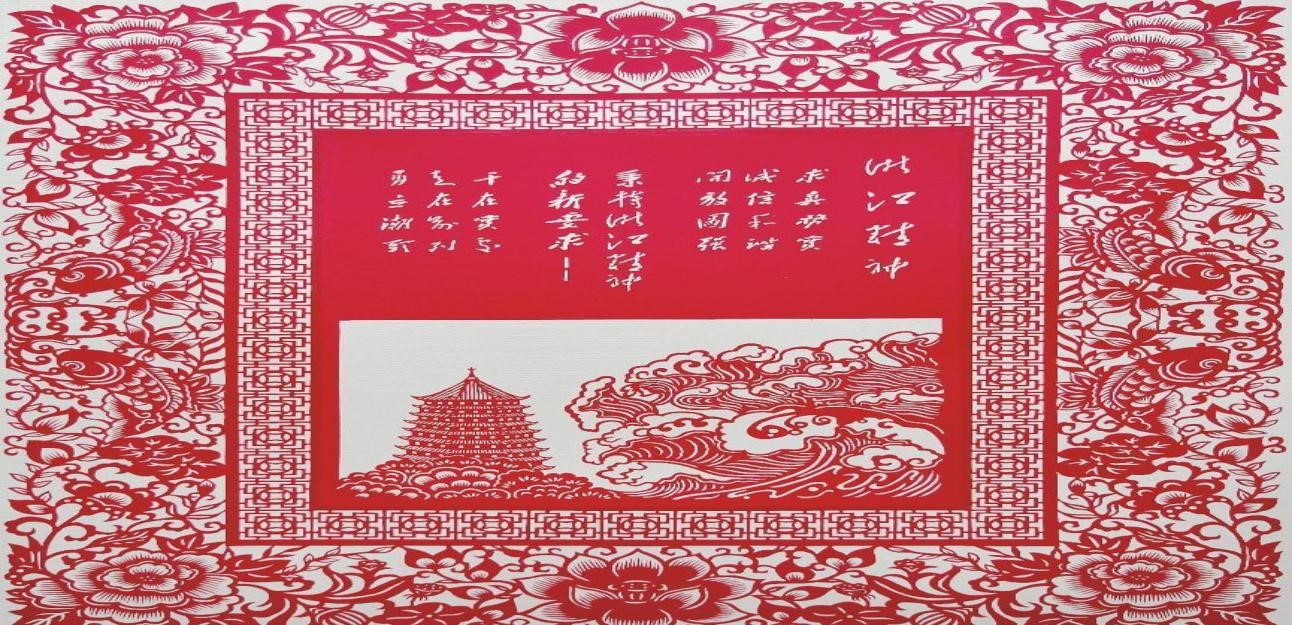 浙江精神
求真务实
诚信和谐
開放圖强
秉持浙江精神
的新要求——
干在实处
走在前列
勇立潮头